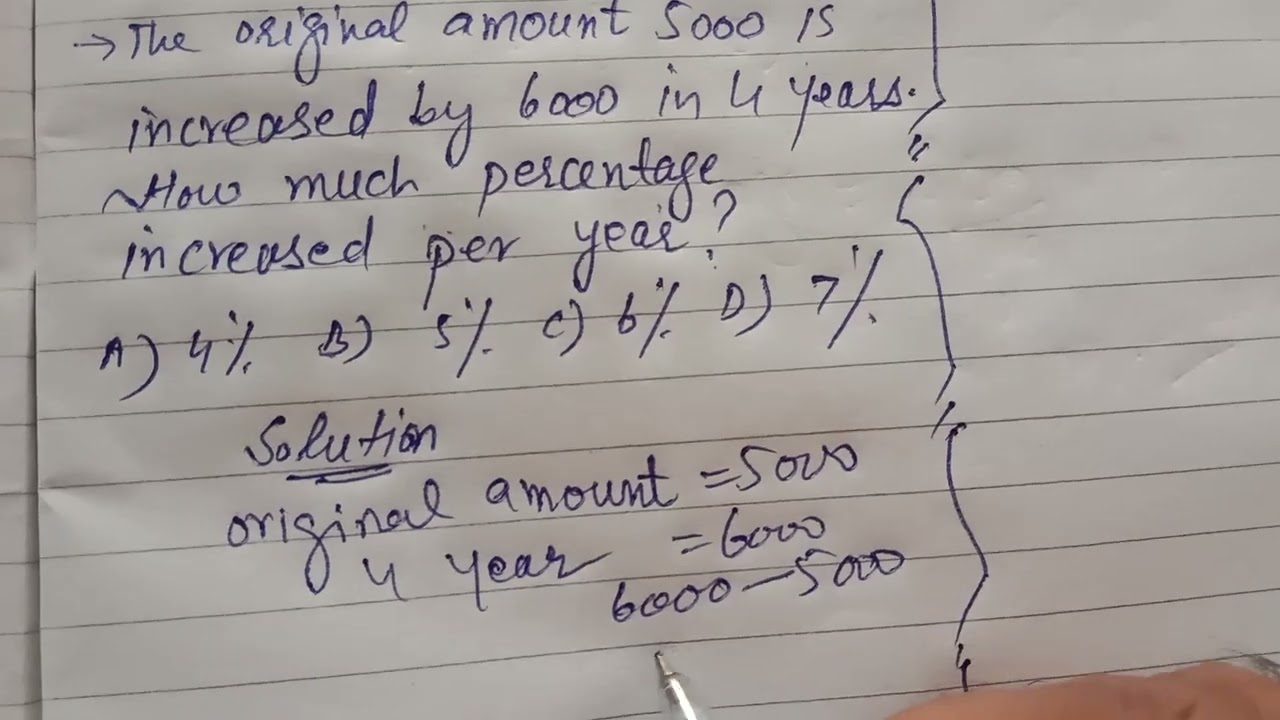 → The original amount 5000 is
increased by 6000 in 4 years.
How much percentage
increased per year?
A) 4% B) 5% C) 6% D) 7%.
Solution
original amount = 5000
4 year = 6000
6000 - 5000